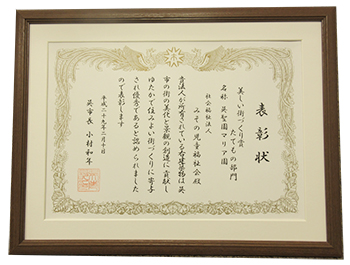 表彰状
美しい街づくり賞
たてもの部門
名称 呉聖園マリア園
社会福祉法人
みその児童福祉会殿
貴法人が所有されている右建築物は呉
市の街の美化と景観の創造に貢献し
ゆたかで住みよい街づくりに寄与
され優秀であると認められました
ので表彰します
平成二十九年二月十日
呉市長 小村和年